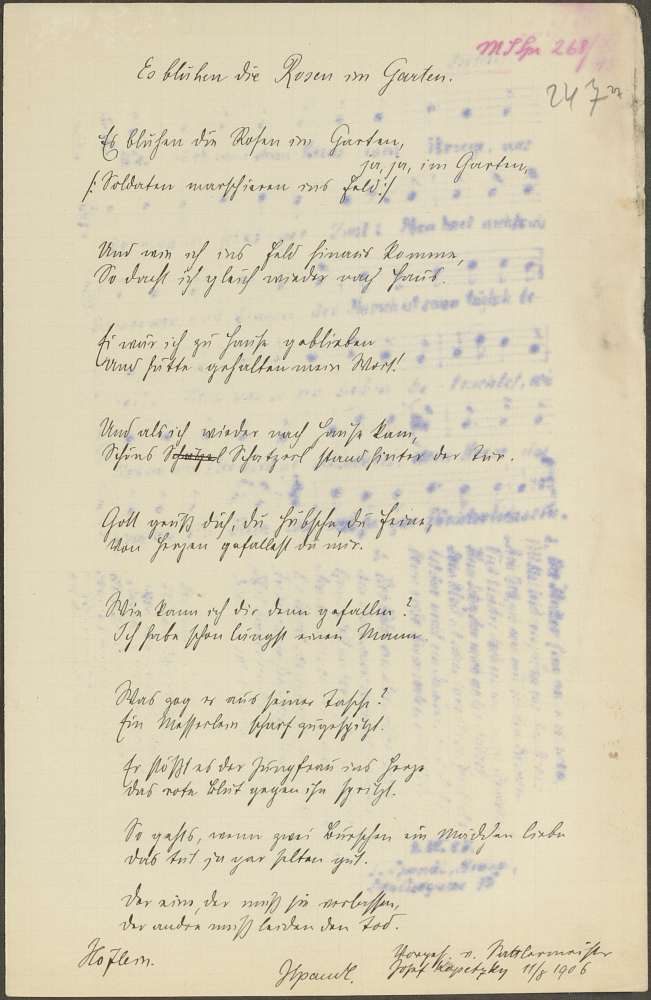 MSSpr 268/
247
Es blühen die Rosen im Garten.
Es blühen die Rosen im Garten,
ja, ja, im Garten,
/: Soldaten marschieren ins Feld :/
Und wie ich ins Feld hinaus komme,
So dacht ich gleich wieder nach Haus.
Ei wär ich zu Hause geblieben
Und hätte gehalten mein Wort!
Und als ich wieder nach Hause kam,
Schöns Schatzerl stand hinter der Tür.
Gott grüß dich, du Hübsche, du Feine,
Von Herzen gefallest du mir.
Wie kann ich dir denn gefallen?
Ich habe schon längst einen Mann.
Was zog er aus seiner Tasche?
Ein Messerlein scharf zugespitzt.
Er stößt es der Jungfrau ins Herze
das rote Blut gegen ihn spritzt.
So gehts, wenn zwei Burschen ein Mädchen liebn
das tut ja gar selten gut.
Der eine, der muß sie verlassen,
der andre muß leiden den Tod.
Höflein.
Vorges. v. Sattlermeister
Josef Kopetzky 11/8 1906